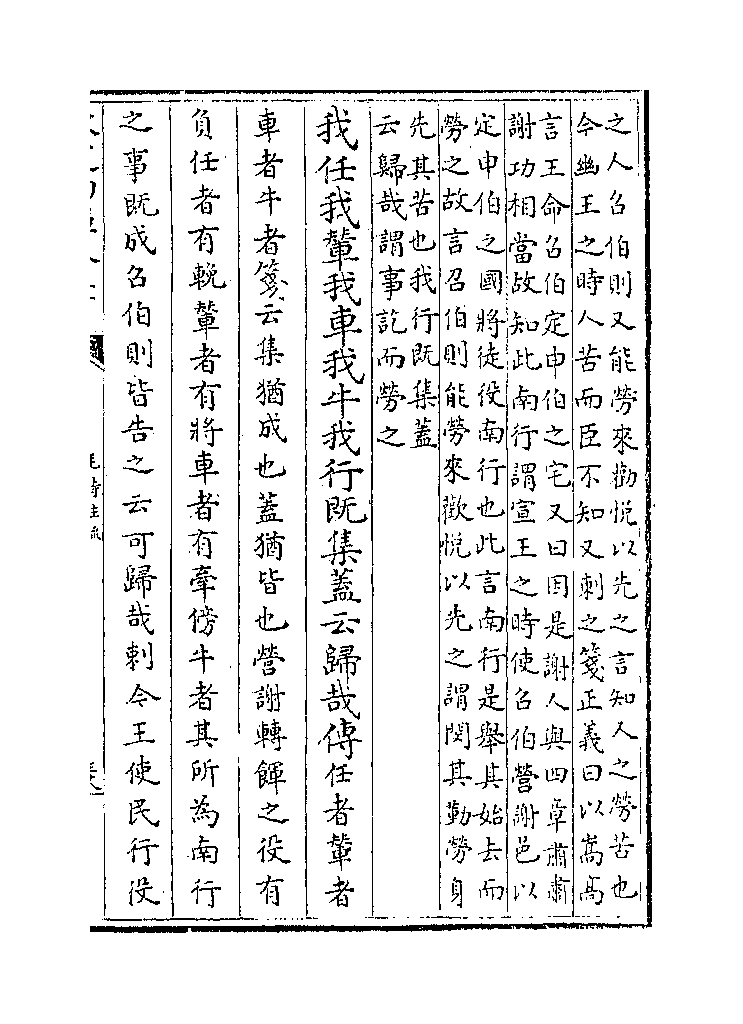 之人召伯則又能勞來勸悅以先之言知人之勞苦也
今幽王之時人苦而臣不知又刺之箋正義曰以嵩高
言王命召伯定申伯之宅又曰因是謝人與四章肅肅
謝功相當故知此南行謂宣王之時使召伯營謝邑以
定申伯之國將徒役南行也此言南行是舉其始去而
勞之故言召伯則能勞來歡悅以先之謂閔其勤勞身
先其苦也我行既集蓋
云歸哉謂事訖而勞之
我任我輦我車我牛我行既集蓋云歸哉傳任者輦者
車者牛者箋云集猶成也蓋猶皆也營謝轉餫之役有
負任者有輓輦者有將車者有牽傍牛者其所為南行
之事既成召伯則皆告之云可歸哉刺今王使民行役
毛詩注疏